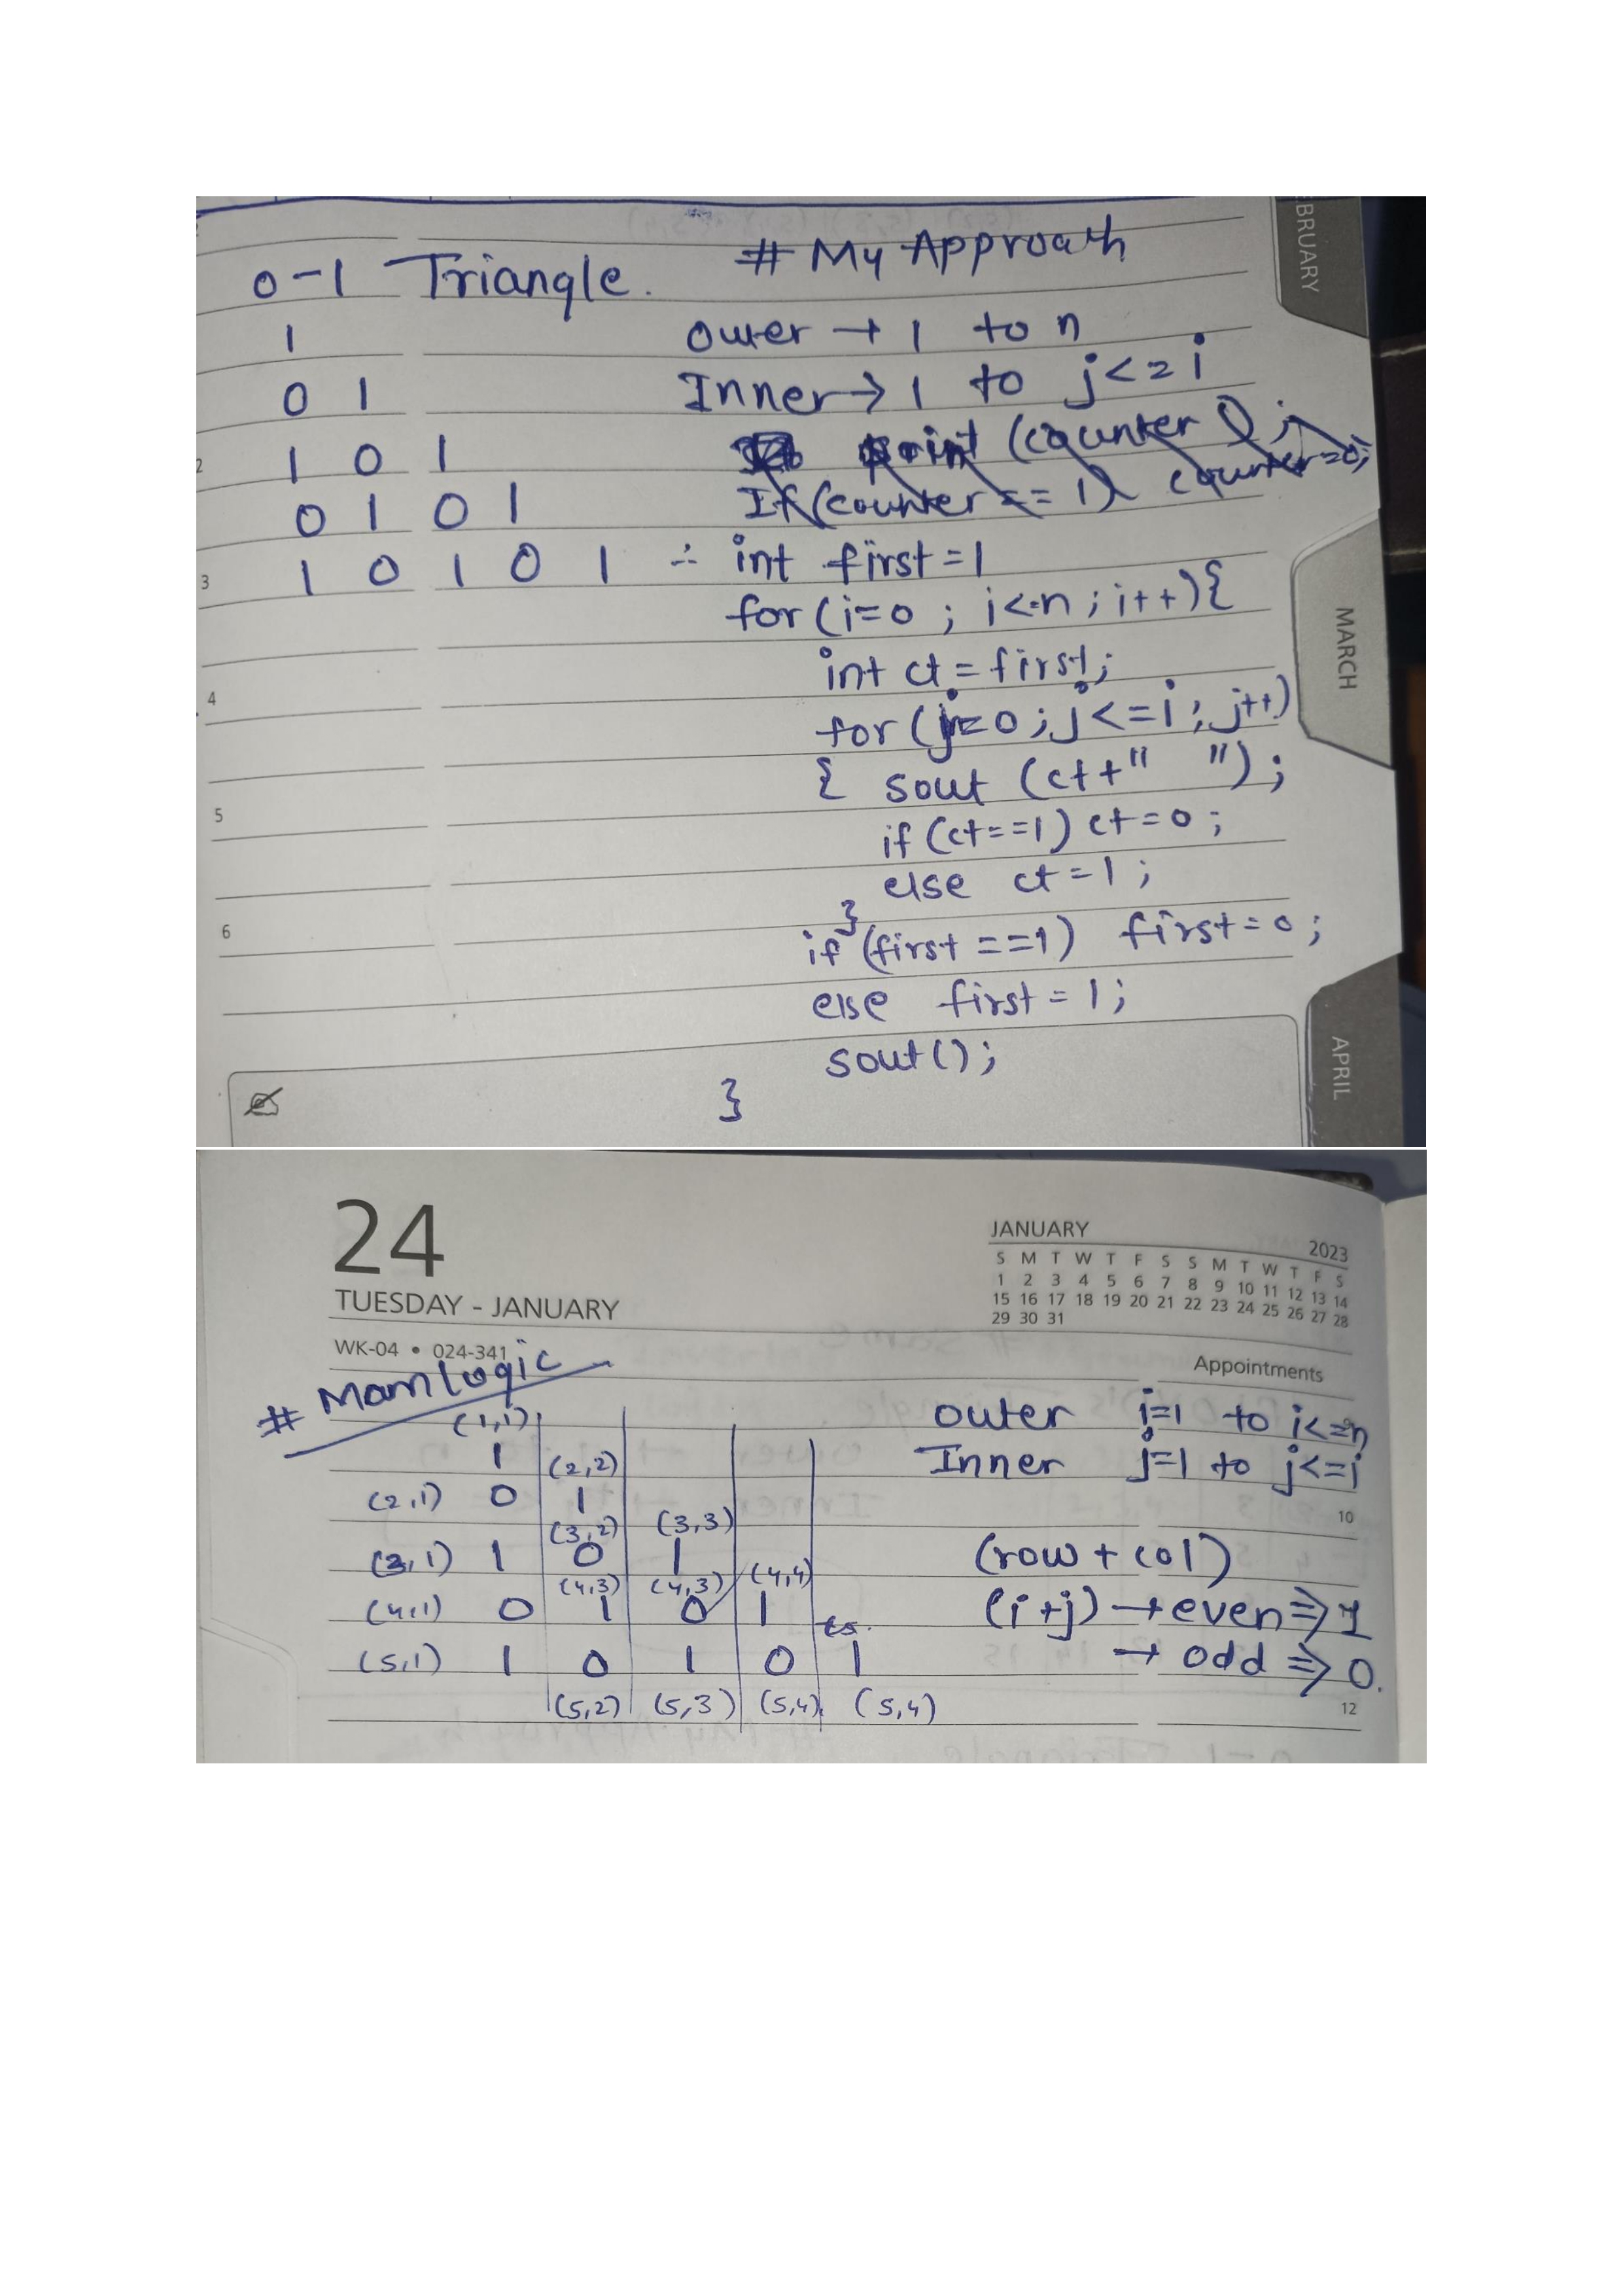 0-1 Triangle.
# My Approach
1
0 1
1 0 1
0 1 0 1
1 0 1 0 1
Outer → 1 to n
Inner → 1 to j<=i
print (counter);
If (counter == 1) counter=0;
∴ int first=1
for (i=0 ; i<=n ; i++){
int ct = first;
for (j=0 ; j<=i ; j++)
{ sout (ct+" ");
if (ct==1) ct=0 ;
else ct=1 ;
}
if (first ==1) first=0 ;
else first = 1 ;
sout() ;
}
2
3
4
5
6
BRUARY
MARCH
APRIL
24
TUESDAY - JANUARY
WK-04 • 024-341
JANUARY 2023
S M T W T F S S M T W T F S
1 2 3 4 5 6 7 8 9 10 11 12 13 14
15 16 17 18 19 20 21 22 23 24 25 26 27 28
29 30 31
Appointments
# Mam logic
(1,1)
1 (2,2)
(2,1) 0 1
(3,2) (3,3)
(3,1) 1 0 1
(4,3) (4,3) (4,4)
(4,1) 0 1 0 1
(5,1) 1 0 1 0 1
(5,2) (5,3) (5,4) (5,4)
outer i=1 to i<=n
Inner j=1 to j<=i
10
(row + col)
(i+j) → even ⇒ 1
→ odd ⇒ 0.
12